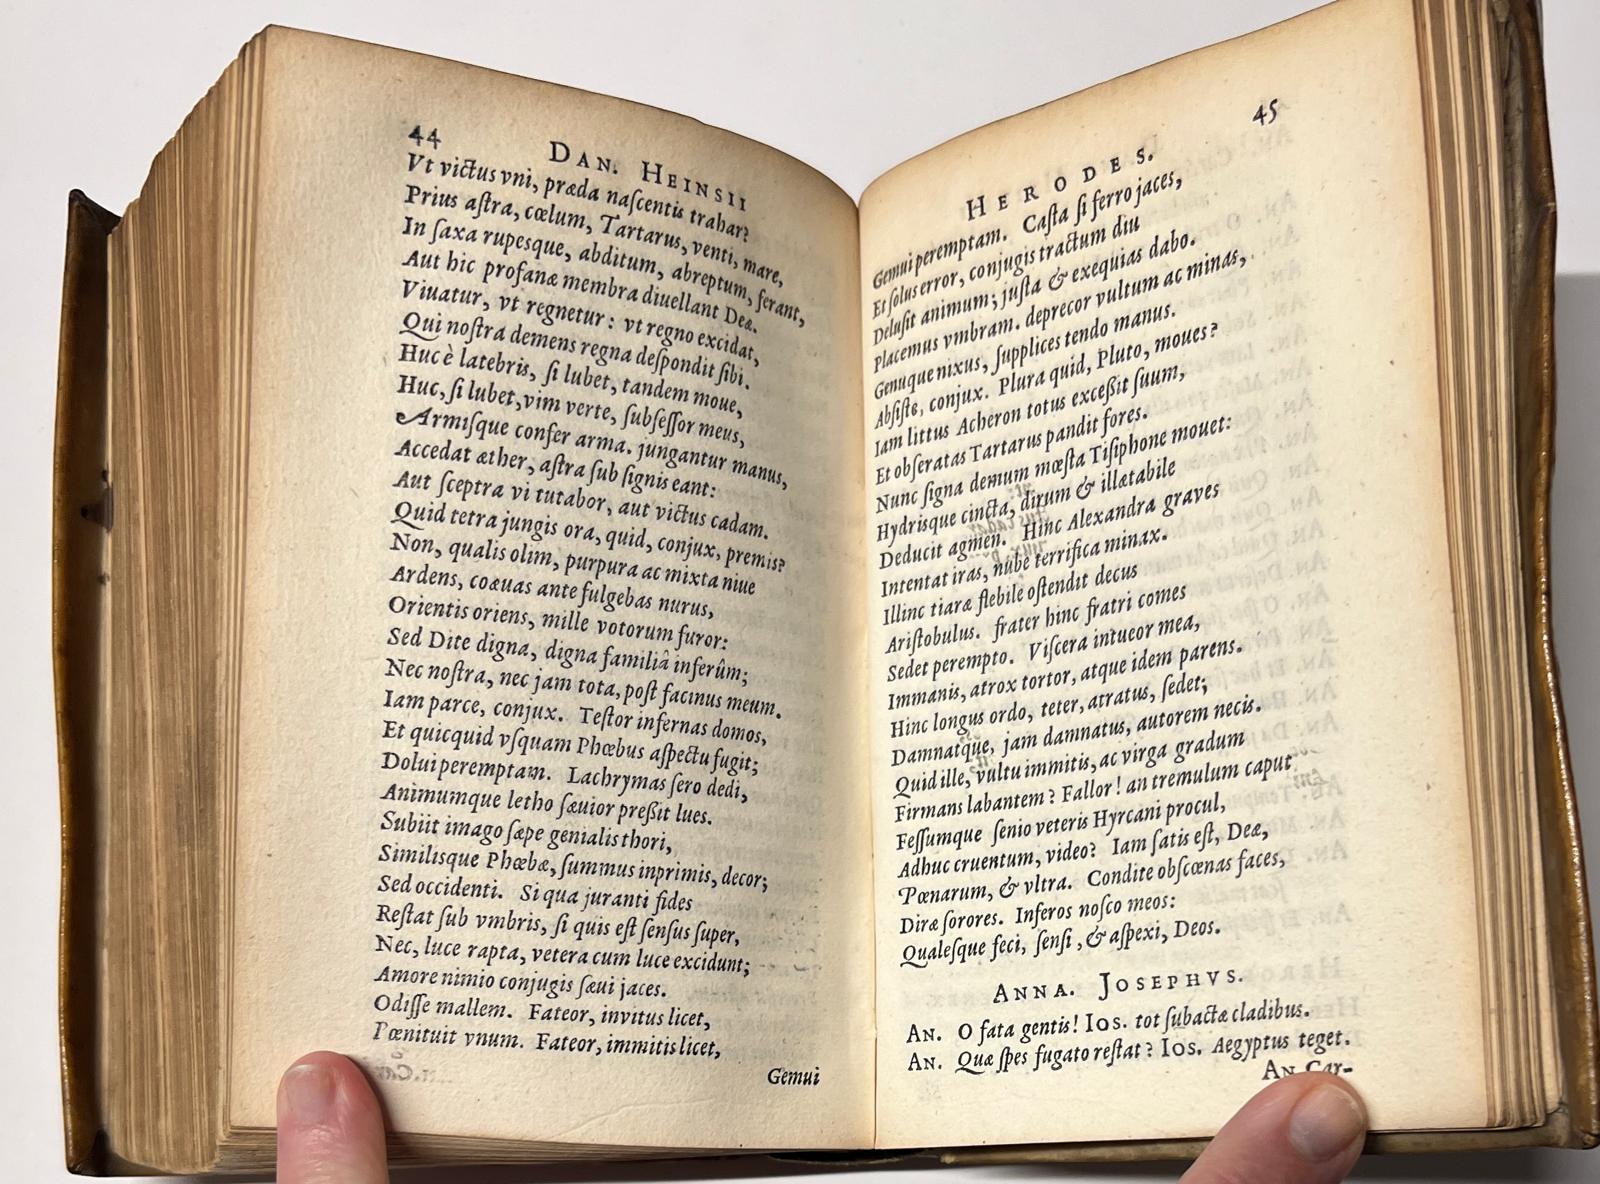 44
DAN. HEINSII
Vt victus vni, præda naſcentis trahar?
Prius aſtra, cœlum, Tartarus, venti, mare,
In ſaxa rupesque, abditum, abreptum, ferant,
Aut hic profanæ membra diuellant Deæ.
Viuatur, vt regnetur: vt regno excidat,
Qui noſtra demens regna deſpondit ſibi.
Huc è latebris, ſi lubet, tandem moue,
Huc, ſi lubet, vim verte, ſubſeſſor meus,
Armiſque confer arma. jungantur manus,
Accedat æther, aſtra ſub ſignis eant:
Aut ſceptra vi tutabor, aut victus cadam.
Quid tetra jungis ora, quid, conjux, premis?
Non, qualis olim, purpura ac mixta niue
Ardens, coæuas ante fulgebas nurus,
Orientis oriens, mille votorum furor:
Sed Dite digna, digna familiâ inferûm;
Nec noſtra, nec jam tota, poſt facinus meum.
Iam parce, conjux. Teſtor infernas domos,
Et quicquid vſquam Phœbus aſpectu fugit;
Dolui peremptam. Lachrymas ſero dedi,
Animumque letho ſæuior preßit lues.
Subiit imago ſæpe genialis thori,
Similisque Phœbæ, ſummus inprimis, decor;
Sed occidenti. Si qua juranti fides
Reſtat ſub vmbris, ſi quis eſt ſenſus ſuper,
Nec, luce rapta, vetera cum luce excidunt;
Amore nimio conjugis ſæui jaces.
Odiſſe mallem. Fateor, invitus licet,
Pœnituit vnum. Fateor, immitis licet,
Gemui
45
HERODES.
Gemui peremptam. Caſta ſi ferro jaces,
Et ſolus error, conjugis tractum diu
Deluſit animum; juſta & exequias dabo.
Placemus vmbram. deprecor vultum ac minas,
Genuque nixus, ſupplices tendo manus.
Abſiſte, conjux. Plura quid, Pluto, moues?
Iam littus Acheron totus exceßit ſuum,
Et obſeratas Tartarus pandit fores.
Nunc ſigna demum mœſta Tiſiphone mouet:
Hydrisque cincta, dirum & illætabile
Deducit agmen. Hinc Alexandra graves
Intentat iras, nube terrifica minax.
Illinc tiaræ flebile oſtendit decus
Ariſtobulus. frater hinc fratri comes
Sedet perempto. Viſcera intueor mea,
Immanis, atrox tortor, atque idem parens.
Hinc longus ordo, teter, atratus, ſedet;
Damnatque, jam damnatus, autorem necis.
Quid ille, vultu immitis, ac virga gradum
Firmans labantem? Fallor! an tremulum caput
Feſſumque ſenio veteris Hyrcani procul,
Adhuc cruentum, video? Iam ſatis eſt, Deæ,
Pœnarum, & vltra. Condite obſcœnas faces,
Diræ ſorores. Inferos noſco meos:
Qualeſque feci, ſenſi, & aſpexi, Deos.
ANNA. JOSEPHVS.
AN. O fata gentis! IOS. tot ſubactæ cladibus.
AN. Quæ ſpes fugato reſtat? IOS. Aegyptus teget.
AN. Car-